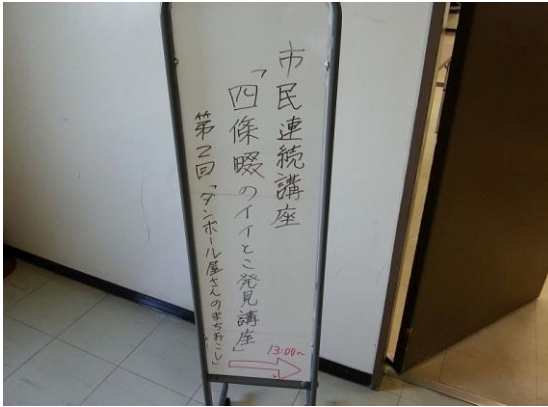 市民連続講座
「四條畷のイイとこ発見講座」
第2回「ダンボール屋さんのまちおこし」
13:00~